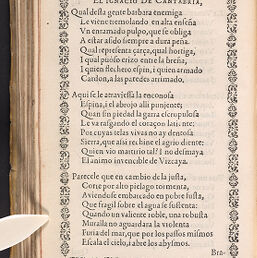 EL IGNACIO DE CANTABRIA,
Qual desta gente barbara enemiga
Le viene tremolando en alta enseña
Vn enramado pulpo, que se obliga
A estar asido siempre a dura peña.
Qual representa çarça, qual hortiga,
I qual puoso erizo entre la breña,
I quien flechero espin, i quien armado
Cardon, a las paredes arrimado.
Aqui se le atraviessa la enconosa
Espina, i el abrojo alli punjente;
Quan sin piedad la garra escrupulosa
Le va rasgando el coraçon
Por cuyas telas vivas no ay dentosa
Sierra, que assi rechine el agrio diente:
Quien vio martirio tal? I no desmaya
El animo invencible de Vizcaya.
Parecele que en cambio de la justa,
Corte por alto pielago tormenta,
Aviendose embarcado en pobre fusta,
Que fragil sobre el agua se sustenta:
Quando un valiente roble, una robusta
Muralla no aguardara la violenta
Furia del mar, que por los passos mismos
Escala el cielo, i abre los abysmos.
Bra-